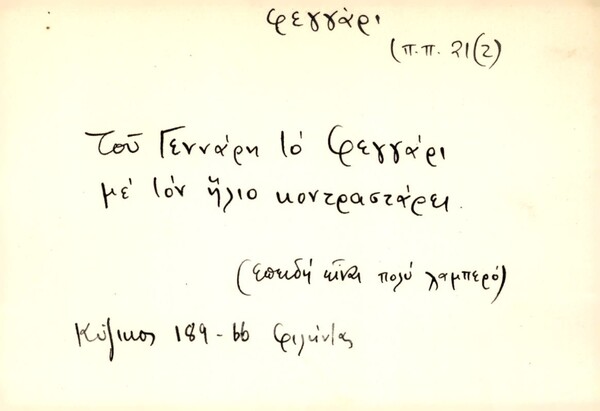 φεγγάρι
(π.π. 21(2)
Τοῦ Γεννάρη τό φεγγάρι
μέ τόν ἥλιο κοντραστάρει.
(ἐπειδή εἶναι πολύ λαμπερό)
Κύζικος 189-66 Φιλήντας